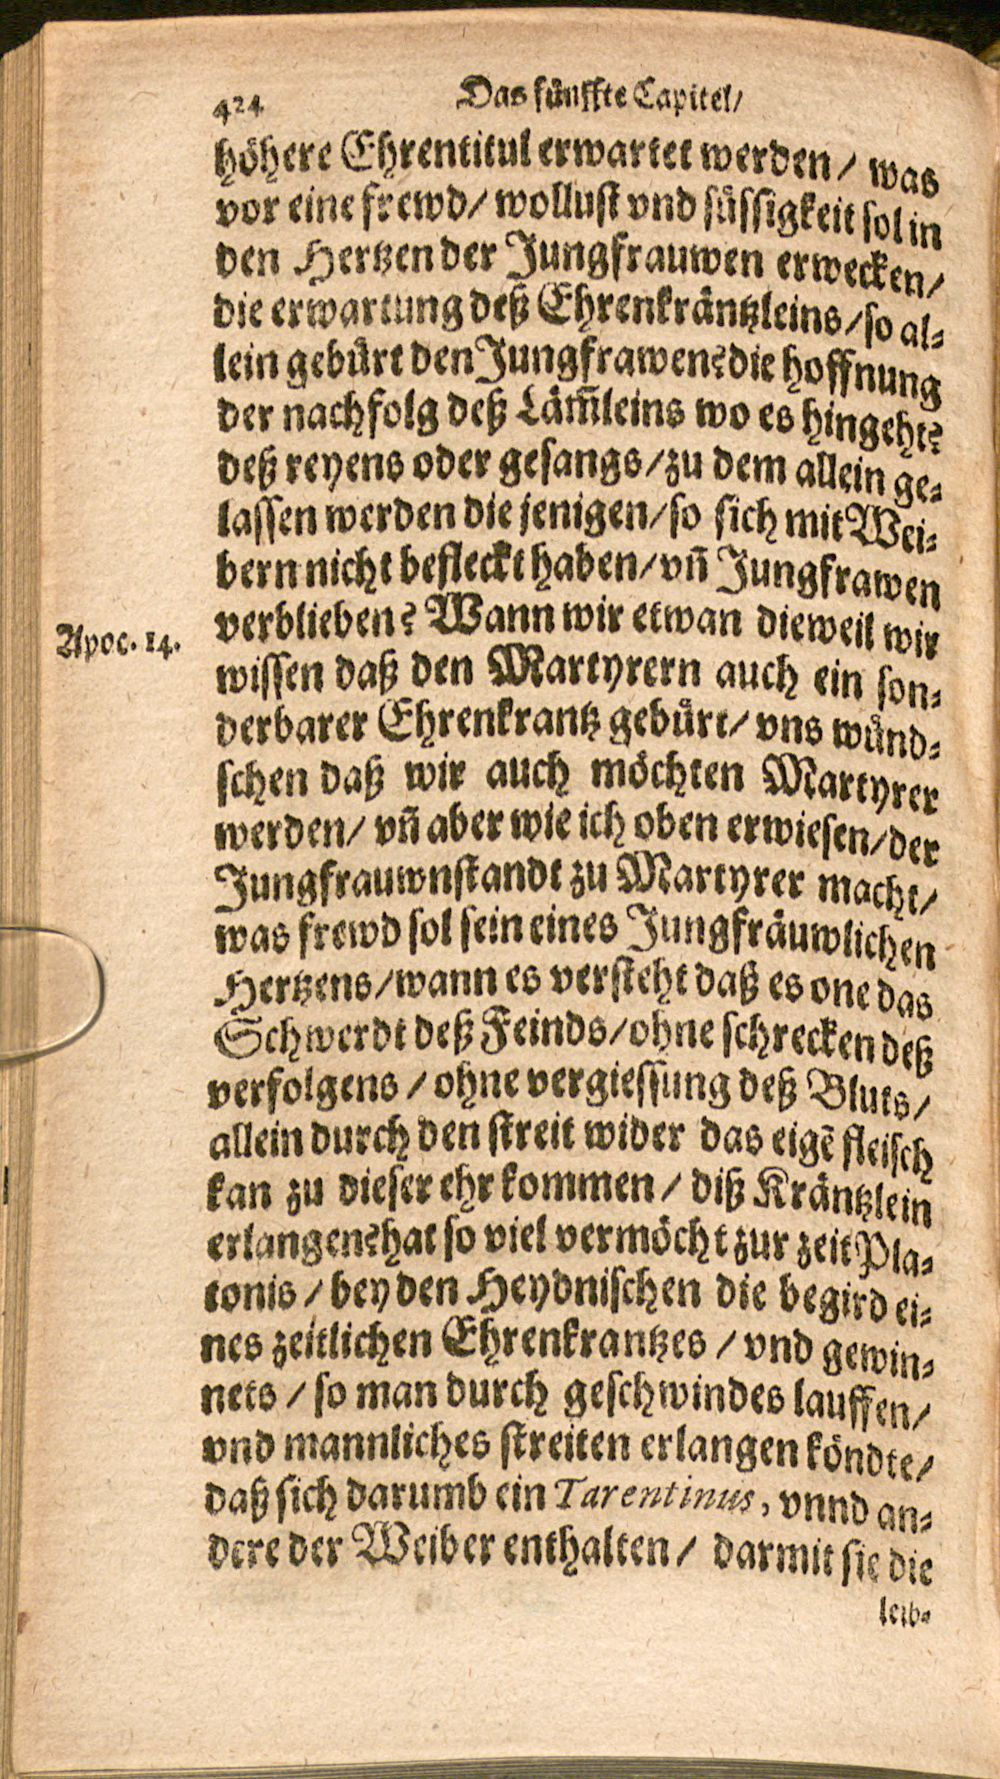 424 Das fünffte Capitel/
höhere Ehrentitul erwartet werden/ was
vor eine frewd/ wollust vnd süssigkeit sol in
den Hertzen der Jungfrauwen erwecken/
die erwartung deß Ehrenkräntzleins/ so al-
lein gebürt den Jungfrawen? die hoffnung
der nachfolg deß Läm̃leins wo es hingeht?
deß reyens oder gesangs/ zu dem allein ge-
lassen werden die jenigen/ so sich mit Wei-
bern nicht befleckt haben/ vñ Jungfrawen
verblieben? Wann wir etwan dieweil wir
Apoc. 14.
wissen daß den Martyrern auch ein son-
derbarer Ehrenkrantz gebürt/ vns wünd-
schen daß wir auch möchten Martyrer
werden/ vñ aber wie ich oben erwiesen/ der
Jungfrauwnstandt zu Martyrer macht/
was frewd sol sein eines Jungfräuwlichen
Hertzens/ wann es versteht daß es one das
Schwerdt deß Feinds/ ohne schrecken deß
verfolgens / ohne vergiessung deß Bluts/
allein durch den streit wider das eigẽ fleisch
kan zu dieser ehr kommen / diß Kräntzlein
erlangen? hat so viel vermöcht zur zeit Pla-
tonis / bey den Heydnischen die begird ei-
nes zeitlichen Ehrenkrantzes / vnd gewin-
nets / so man durch geschwindes lauffen/
vnd mannliches streiten erlangen köndte/
daß sich darumb ein Tarentinus, vnnd an-
dere der Weiber enthalten / darmit sie die
leib-